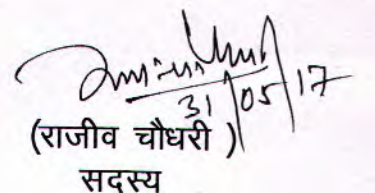 31/05/17
(राजीव चौधरी )
सदस्य